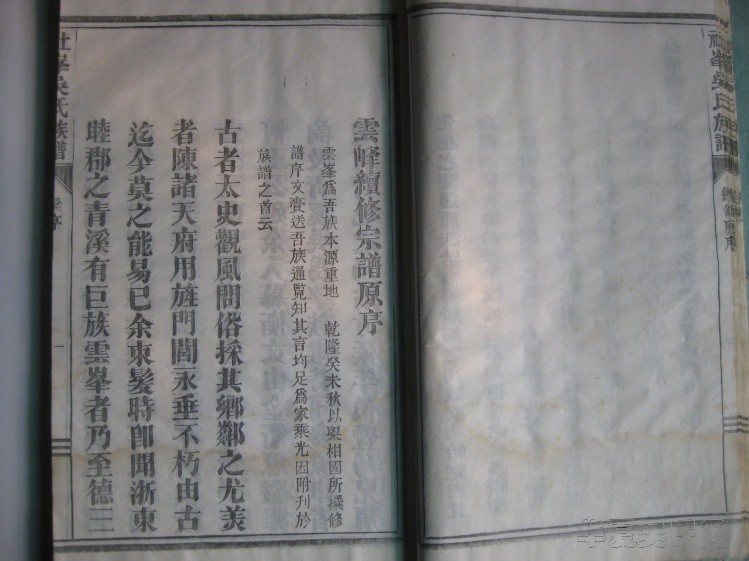 雲峰續修宗譜原序
雲峯爲吾族本源重地 乾隆癸未秋以梁相國所撰修
譜序文賫送吾族通覧知其言均足爲家乘光因附刊於
族譜之首云
古者太史觀風問俗採其鄉鄰之尤美
者陳諸天府用旌門閭永垂不朽由古
迄今莫之能易已余束髮時卽聞浙東
睦郡之青溪有巨族雲峯者乃至德三
社峯吳氏族譜
序
一